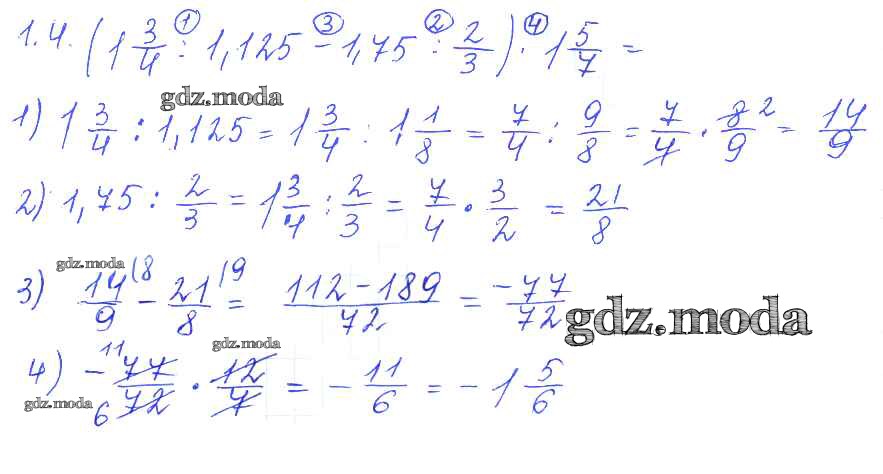 1.4. (1 3/4 :① 1,125 -③ 1,75 :② 2/3) ·④ 1 5/7 =
gdz.moda
1) 1 3/4 : 1,125 = 1 3/4 : 1 1/8 = 7/4 : 9/8 = 7/4 · 8/9 2 = 14/9
2) 1,75 : 2/3 = 1 3/4 : 2/3 = 7/4 · 3/2 = 21/8
gdz.moda
3) 14/9 (8 - 21/8 (9 = 112 - 189/72 = -77/72
gdz.moda
gdz.moda
4) - 11 77/72 6 · 12/7 = - 11/6 = - 1 5/6
gdz.moda